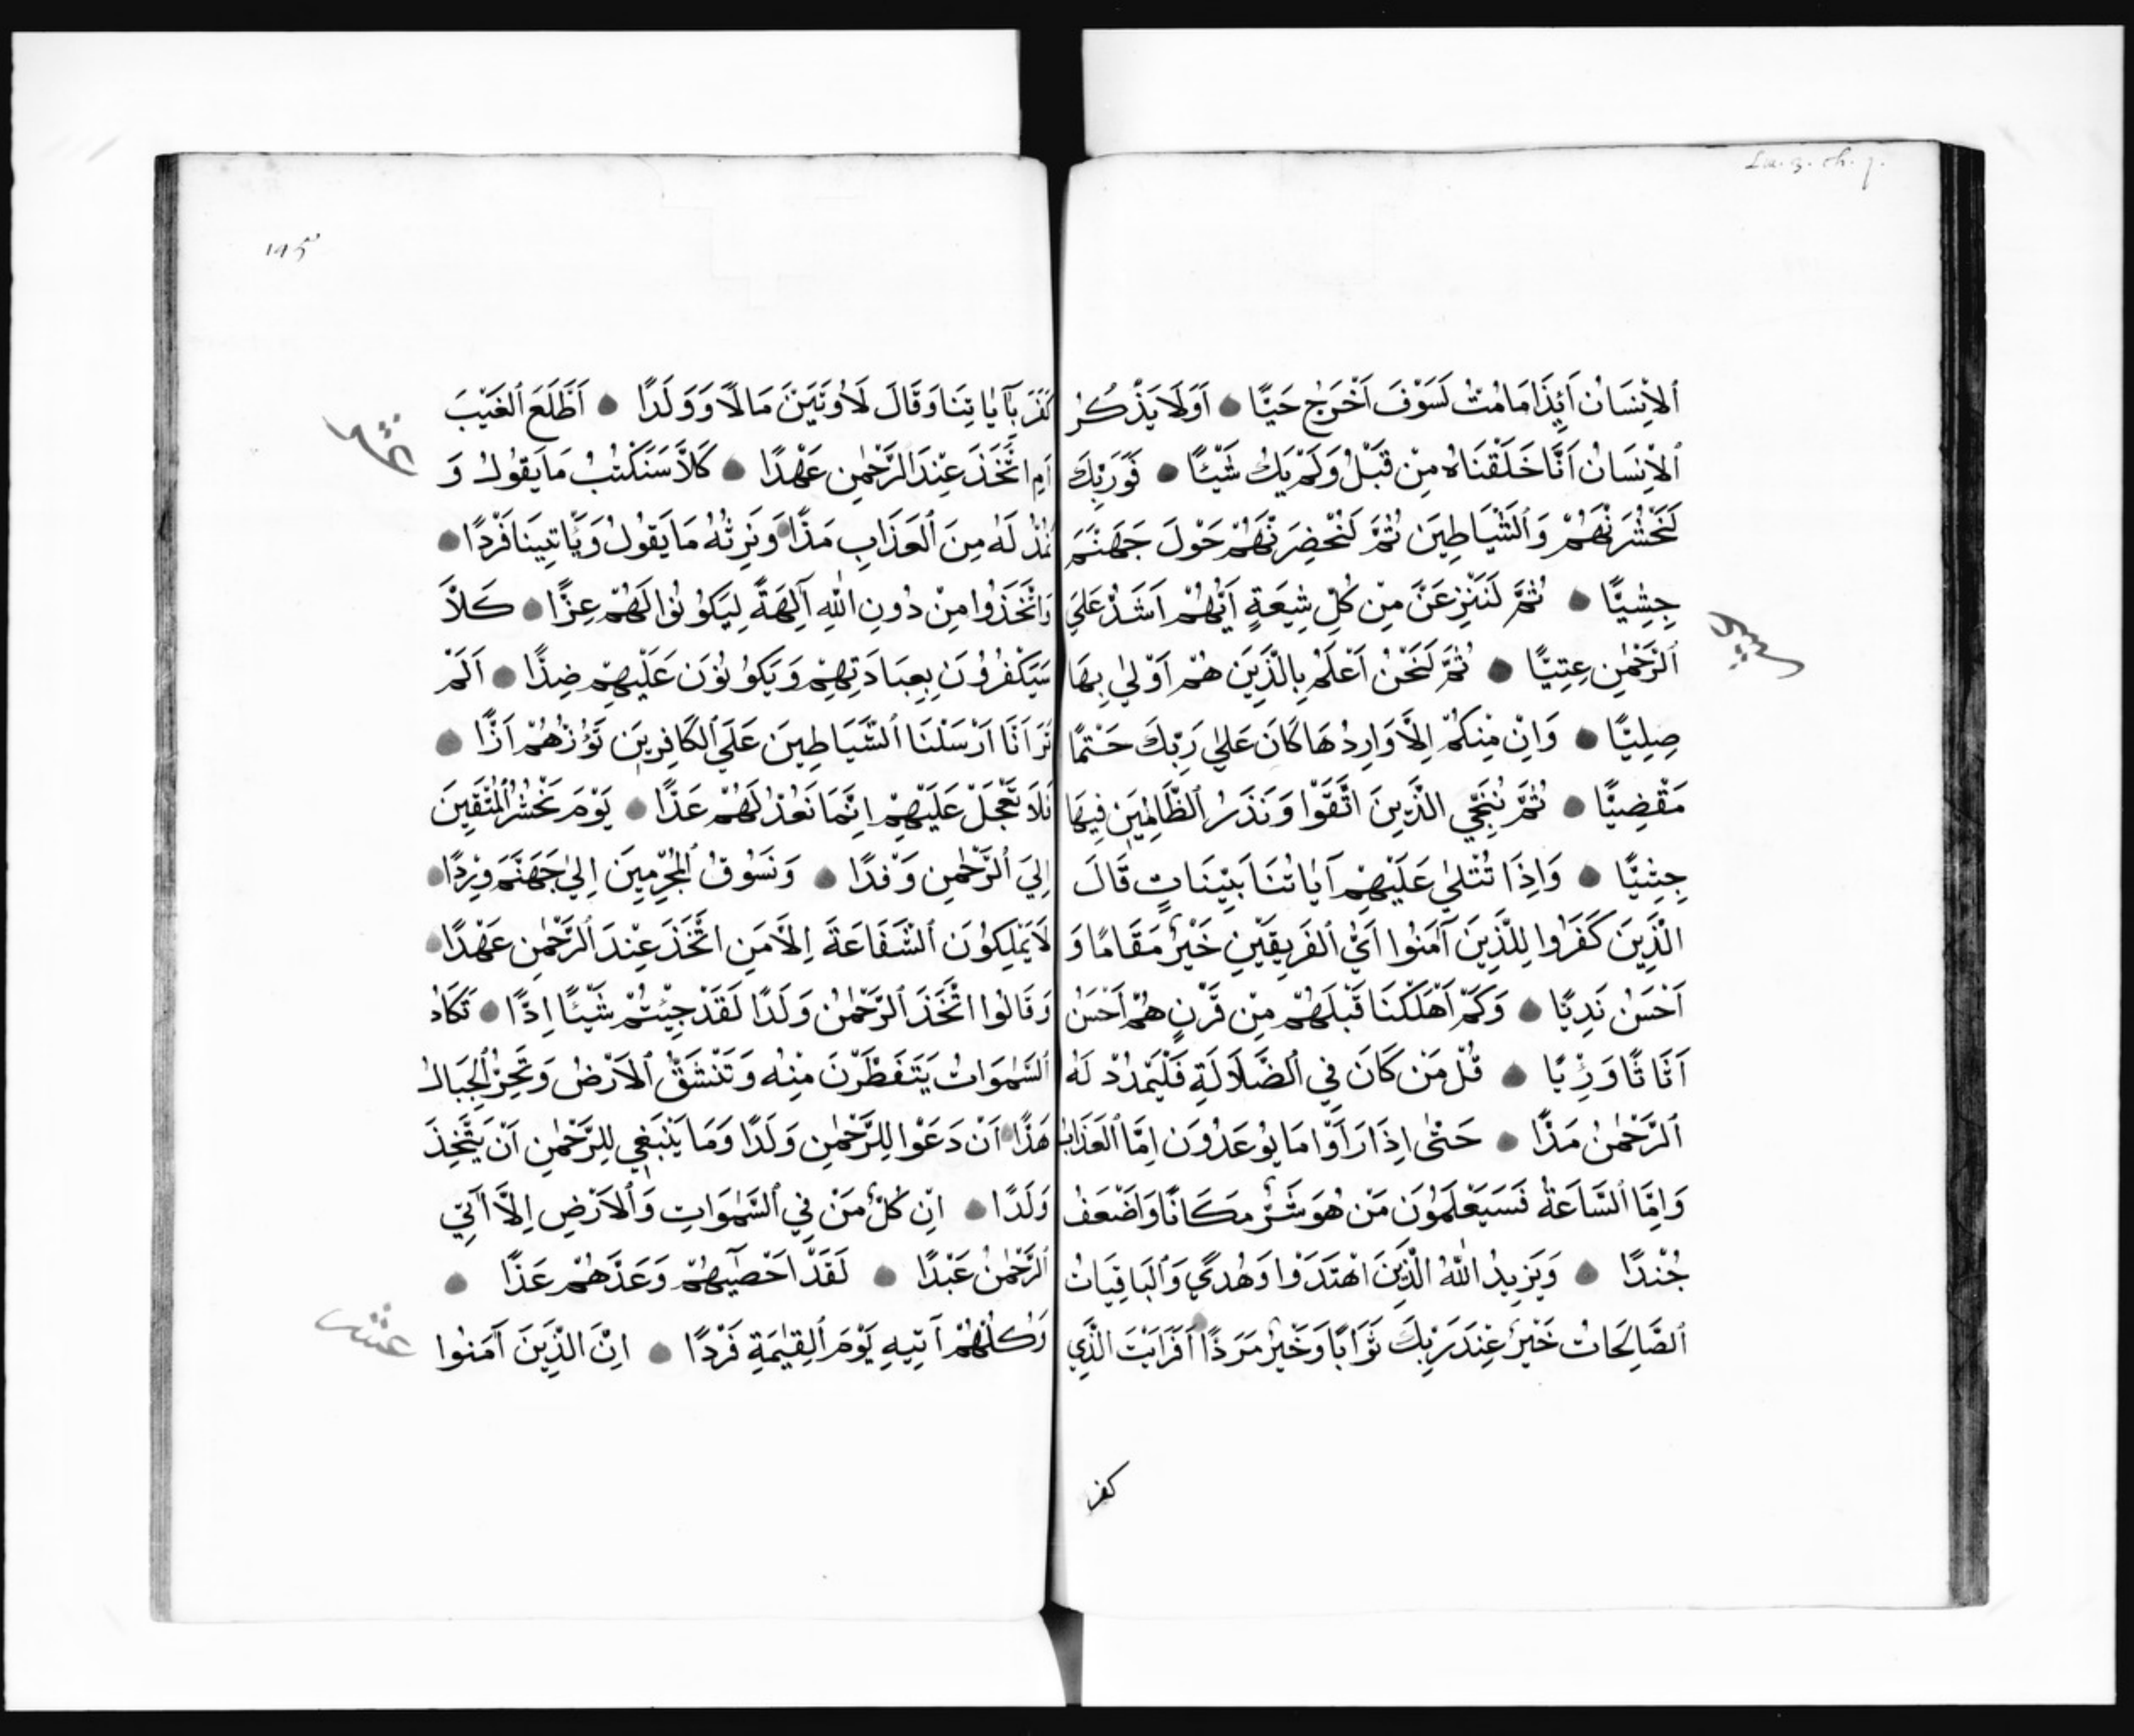 Lu. 3. ch. 7.
ٱلاِنْسَانُ أَئِذَا مَا مُتُّ لَسَوْفَ اُخْرَجُ حَيًّا اَوَلَا يَذْكُرُ
ٱلاِنْسَانُ اَنَّا خَلَقْنَاهُ مِنْ قَبْلُ وَلَمْ يَكُ شَيْئًا فَوَرَبِّكَ
لَنَحْشُرَنَّهُمْ وَٱلشَّيَاطِينَ ثُمَّ لَنُحْضِرَنَّهُمْ حَوْلَ جَهَنَّمَ
جِثِيًّا ثُمَّ لَنَنْزِعَنَّ مِنْ كُلِّ شِيعَةٍ اَيُّهُمْ اَشَدُّ عَلَي
ٱلرَّحْمٰنِ عِتِيًّا ثُمَّ لَنَحْنُ اَعْلَمُ بِالَّذِينَ هُمْ اَوْلٰي بِهَا
صِلِيًّا وَاِنْ مِنْكُمْ اِلَّا وَارِدُهَا كَانَ عَلٰي رَبِّكَ حَتْمًا
مَقْضِيًّا ثُمَّ نُنَجِّي الَّذِينَ اتَّقَوْا وَنَذَرُ ٱلظَّالِمِينَ فِيهَا
جِثِيًّا وَاِذَا تُتْلٰي عَلَيْهِمْ آيَاتُنَا بَيِّنَاتٍ قَالَ
الَّذِينَ كَفَرُوا لِلَّذِينَ آمَنُوا اَيُّ ٱلفَرِيقَيْنِ خَيْرٌ مَقَامًا وَ
اَحْسَنُ نَدِيًّا وَكَمْ اَهْلَكْنَا قَبْلَهُمْ مِنْ قَرْنٍ هُمْ اَحْسَنُ
اَثَاثًا وَرِئْيًا قُلْ مَنْ كَانَ فِي ٱلضَّلَالَةِ فَلْيَمْدُدْ لَهُ
ٱلرَّحْمٰنُ مَدًّا حَتّٰى اِذَا رَاَوْا مَا يُوعَدُونَ اِمَّا ٱلعَذَابَ
وَاِمَّا ٱلسَّاعَةَ فَسَيَعْلَمُونَ مَنْ هُوَ شَرٌّ مَكَانًا وَاَضْعَفُ
جُنْدًا وَيَزِيدُ اللّٰهُ الَّذِينَ اهْتَدَوْا وَهُدًي وَٱلبَاقِيَاتُ
ٱلصَّالِحَاتُ خَيْرٌ عِنْدَ رَبِّكَ ثَوَابًا وَخَيْرٌ مَرَدًّا اَفَرَاَيْتَ الَّذِي
كفر
١٩٥
كَفَرَ بِآيَاتِنَا وَقَالَ لَاُوتَيَنَّ مَالًا وَوَلَدًا اَطَّلَعَ ٱلغَيْبَ
اَمِ اتَّخَذَ عِنْدَ ٱلرَّحْمٰنِ عَهْدًا كَلَّا سَنَكْتُبُ مَا يَقُولُ وَ
نَمُدُّ لَهُ مِنَ ٱلعَذَابِ مَدًّا وَنَرِثُهُ مَا يَقُولُ وَيَأْتِينَا فَرْدًا
وَاتَّخَذُوا مِنْ دُونِ اللّٰهِ آلِهَةً لِيَكُونُوا لَهُمْ عِزًّا كَلَّا
سَيَكْفُرُونَ بِعِبَادَتِهِمْ وَيَكُونُونَ عَلَيْهِمْ ضِدًّا اَلَمْ
تَرَ اَنَّا اَرْسَلْنَا ٱلشَّيَاطِينَ عَلَي ٱلكَافِرِينَ تَؤُزُّهُمْ اَزًّا
فَلَا تَعْجَلْ عَلَيْهِمْ اِنَّمَا نَعُدُّ لَهُمْ عَدًّا يَوْمَ نَحْشُرُ ٱلمُتَّقِينَ
اِلَي ٱلرَّحْمٰنِ وَفْدًا وَنَسُوقُ ٱلمُجْرِمِينَ اِلٰي جَهَنَّمَ وِرْدًا
لَا يَمْلِكُونَ ٱلشَّفَاعَةَ اِلَّا مَنِ اتَّخَذَ عِنْدَ ٱلرَّحْمٰنِ عَهْدًا
وَقَالُوا اتَّخَذَ ٱلرَّحْمٰنُ وَلَدًا لَقَدْ جِئْتُمْ شَيْئًا اِدًّا تَكَادُ
ٱلسَّمٰوَاتُ يَتَفَطَّرْنَ مِنْهُ وَتَنْشَقُّ ٱلاَرْضُ وَتَخِرُّ ٱلجِبَالُ
هَدًّا اَنْ دَعَوْا لِلرَّحْمٰنِ وَلَدًا وَمَا يَنْبَغِي لِلرَّحْمٰنِ اَنْ يَتَّخِذَ
وَلَدًا اِنْ كُلُّ مَنْ فِي ٱلسَّمٰوَاتِ وَٱلاَرْضِ اِلَّا آتِي
ٱلرَّحْمٰنِ عَبْدًا لَقَدْ اَحْصٰيهُمْ وَعَدَّهُمْ عَدًّا
وَكُلُّهُمْ آتِيهِ يَوْمَ ٱلقِيٰمَةِ فَرْدًا اِنَّ الَّذِينَ آمَنُوا
عشر